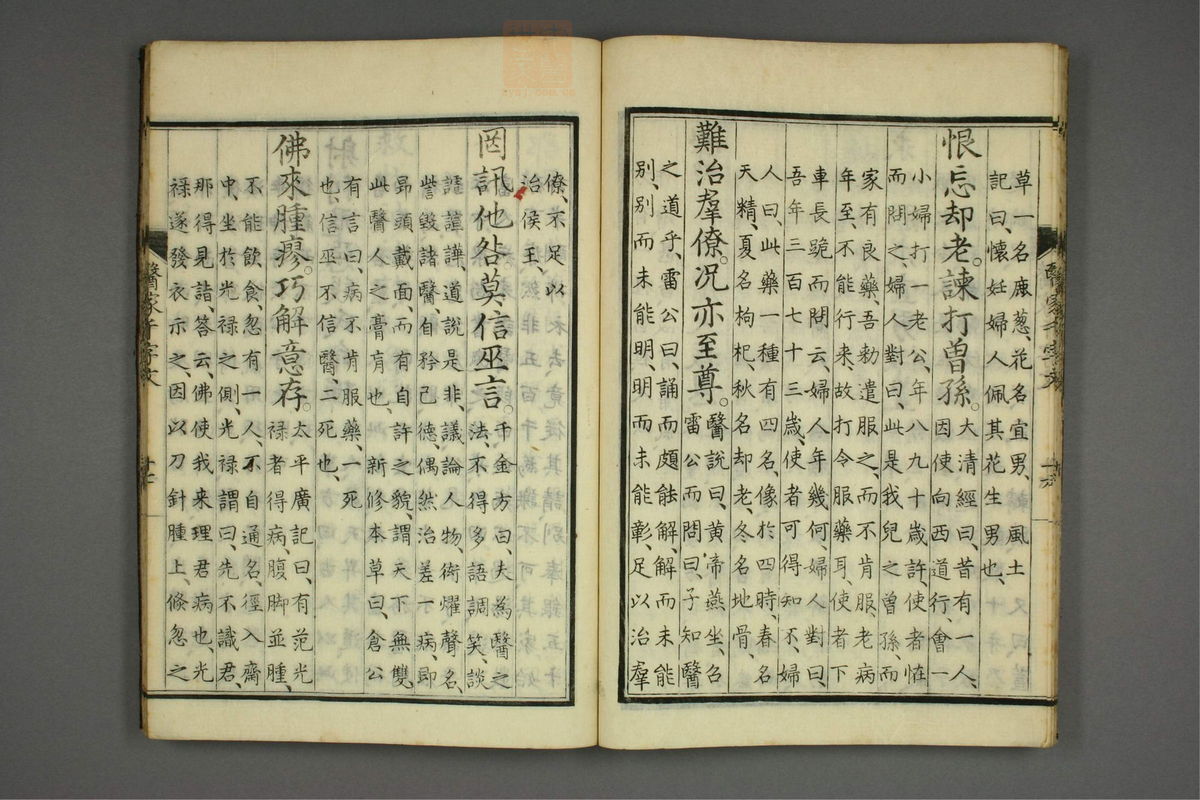 草一名鹿葱、花名宜男、風土
記曰、懷妊婦人佩其花生男也、
恨忘却老。諫打曽孫。大清經曰、昔有一人、
因使向西道行、會一
小婦打一老公、年八九十歳許、使者恠
而問之、婦人對曰、此是我兒之曽孫、而
家有良藥、吾勅遣服之、而不肯服、老病
年至、不能行来、故打令服藥耳、使者下
車長跪而問云、婦人年幾何、婦人對曰、
吾年三百七十三歳、使者可得知不、婦
人曰、此藥一種有四名、像於四時、春名
天精、夏名枸杞、秋名却老、冬名地骨、
難治羣僚。况亦至尊。醫說曰、黄帝燕坐、召
雷公而問曰、子知醫
之道乎、雷公曰、誦而頗能解、解而未能
別、別而未能明、明而未能彰、足以治羣
醫家千字文 十六
僚、不足以
治侯王、
罔訊他咎。莫信巫言。千金方曰、夫為醫之
法、不得多語調笑、談
謔諠譁、道說是非、議論人物、衒燿聲名、
訾毀諸醫、自矜己德、偶然治差一病、即
昂頭戴面、而有自許之貌、謂天下無雙、
此醫人之膏肓也、新修本草曰、倉公
有言曰、病不肯服藥、一死
也、信巫不信醫、二死也、
佛來腫瘳。巧解意存。太平廣記曰、有范光
禄者得病、腹脚並腫、
不能飲食、忽有一人、不自通名、徑入齋
中、坐於光禄之側、光禄謂曰、先不識君、
那得見詣、答云、佛使我来理君病也、光
禄遂發衣示之、因以刀針腫上、倏忽之
醫家千字文 十七